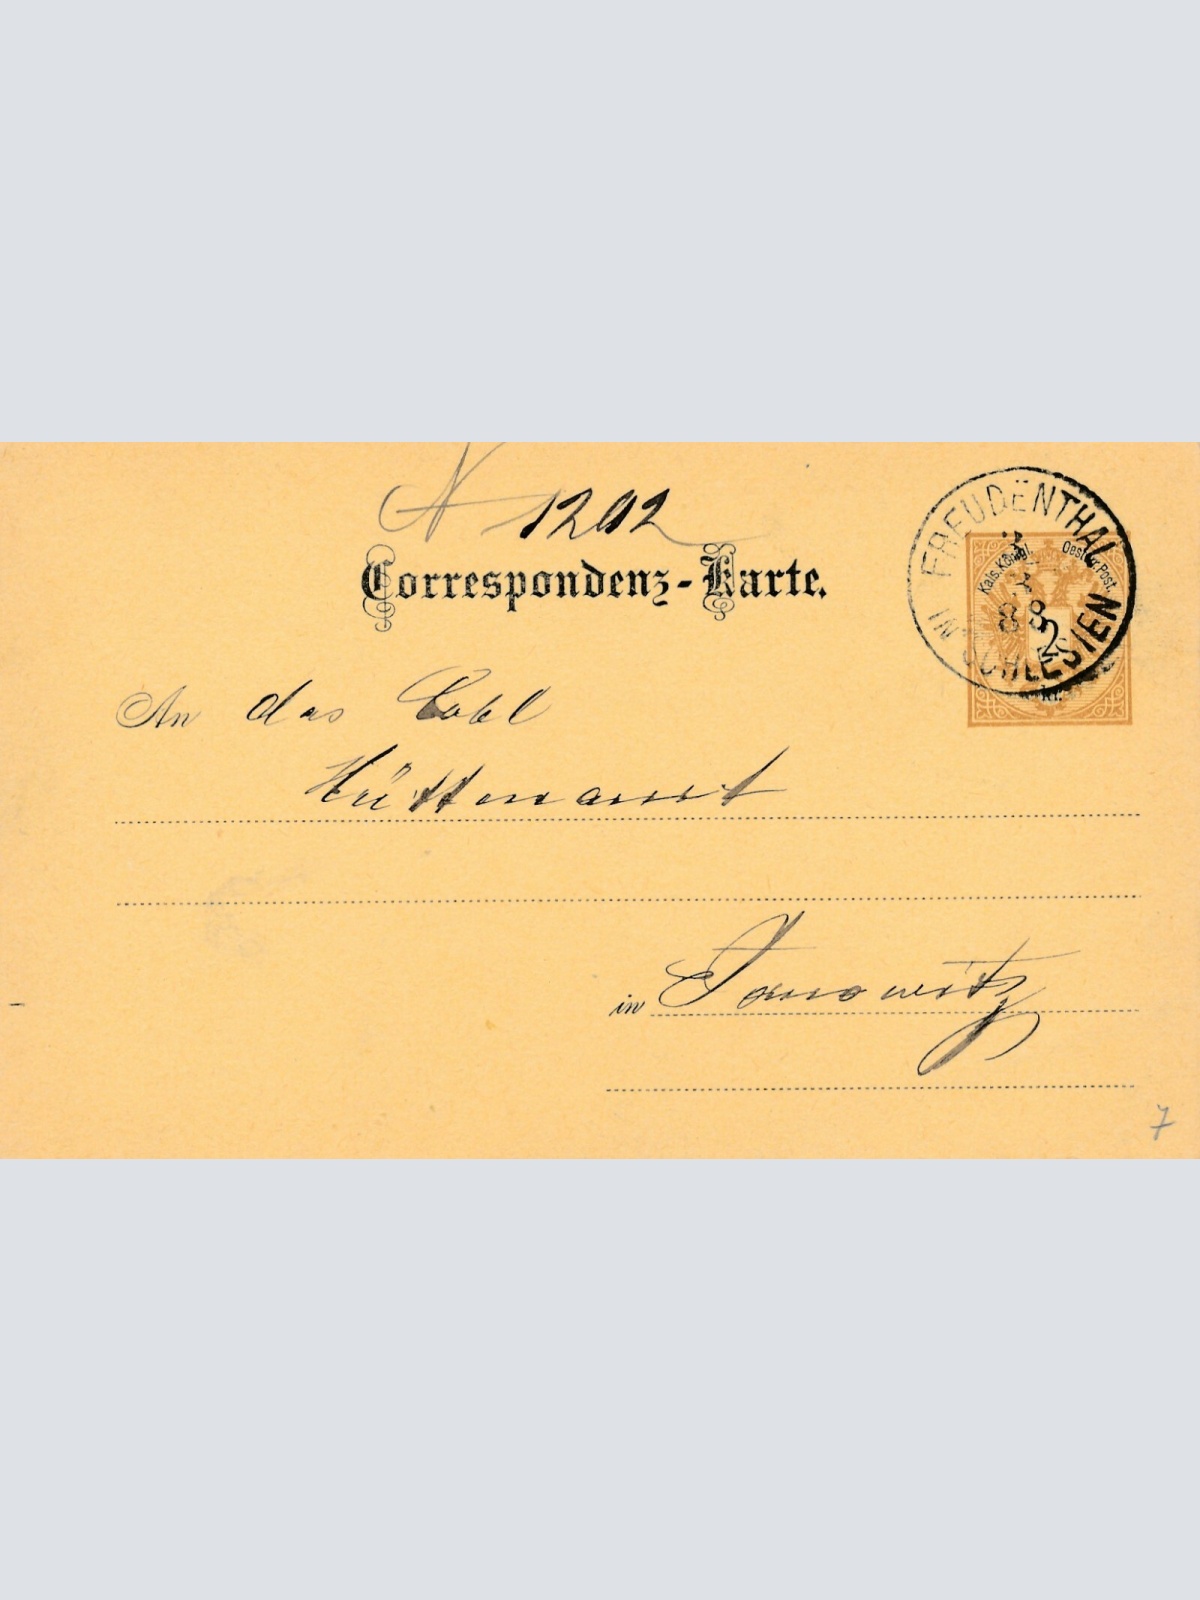 N 1202
Correspondenz-Karte.
FREUDENTHAL
IN SCHLESIEN
3
3
88
Kais. Königl. Oest
Post.
2
kr.
An das Löbl
Hüttenamt
in Janowitz
7